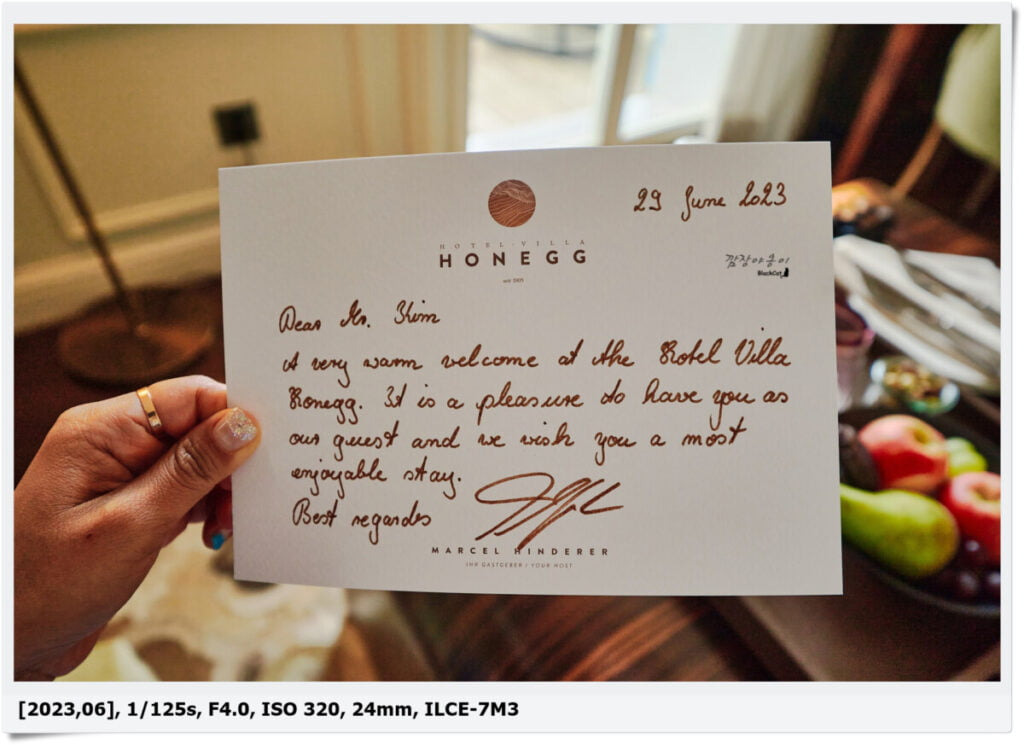 29 June 2023
HOTEL·VILLA
HONEGG
seit 1905
깜장야옹이
BlackCat
Dear Mr. Kim
A very warm welcome at the Hotel Villa
Honegg. It is a pleasure to have you as
our guest and we wish you a most
enjoyable stay.
Best regardes
MARCEL HINDERER
IHR GASTGEBER / YOUR HOST
[2023,06], 1/125s, F4.0, ISO 320, 24mm, ILCE-7M3